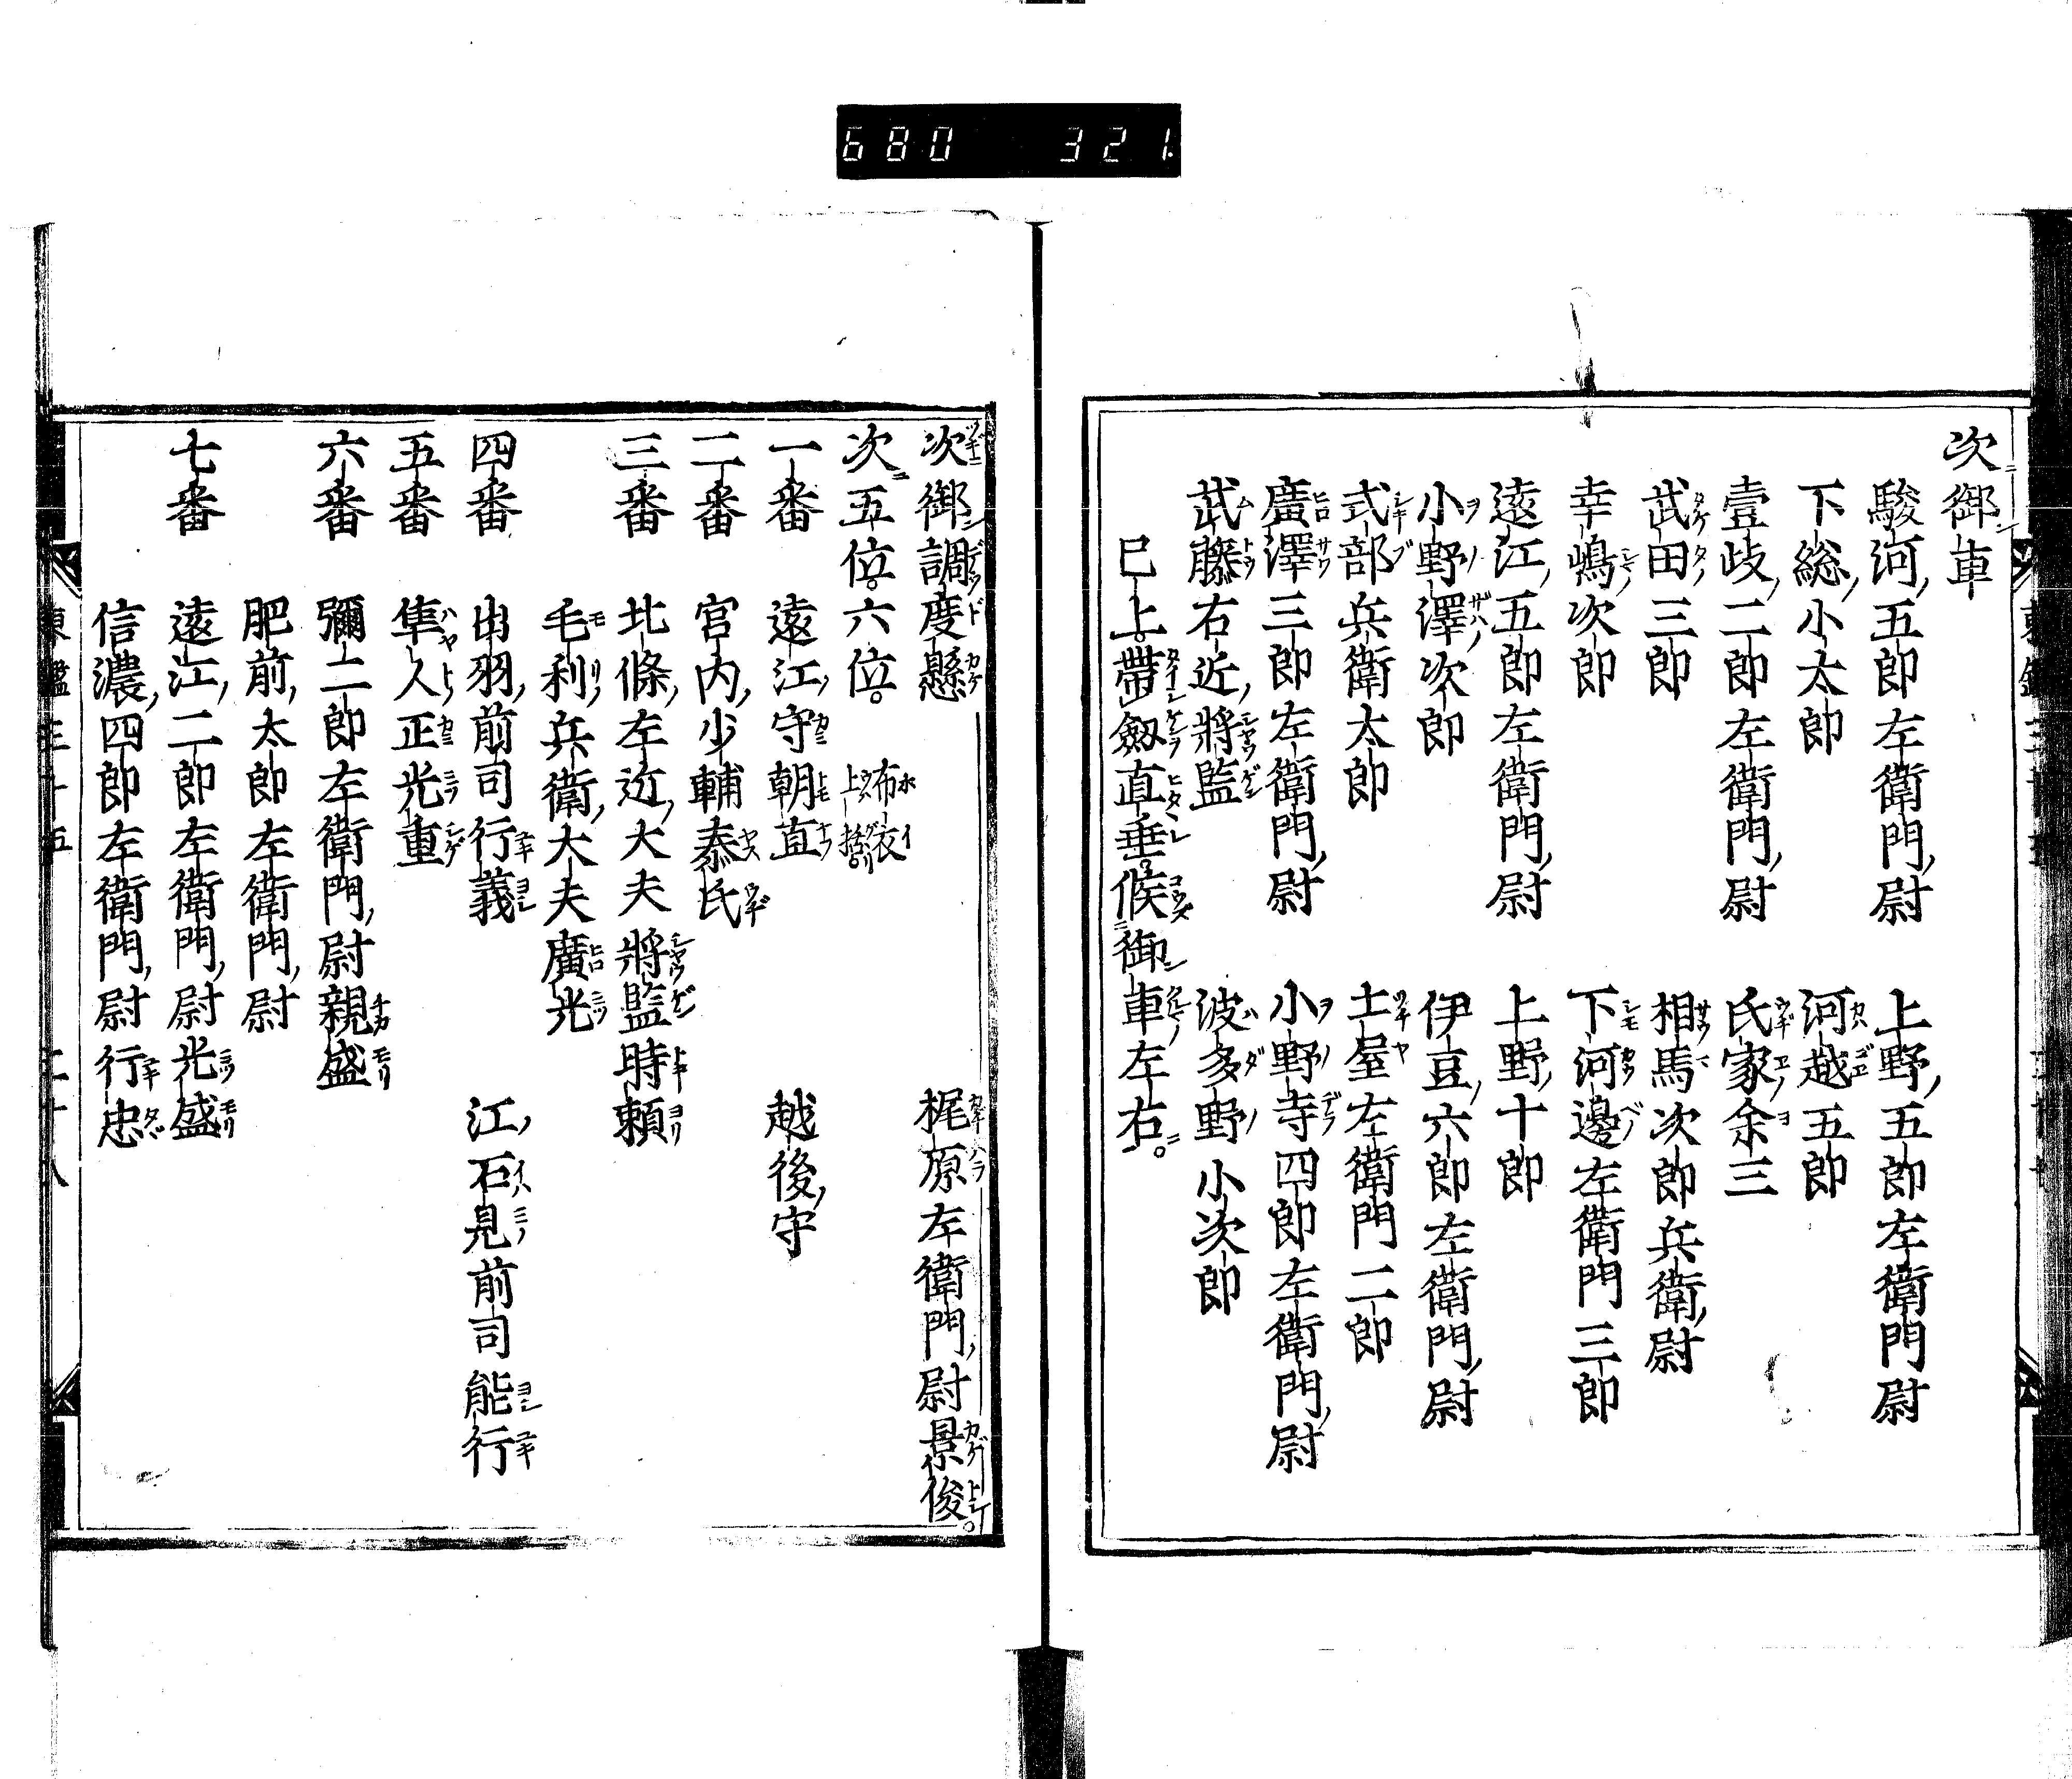 680 321
次御車
駿河五郎左衛門尉 上野五郎左衛門尉
下総小太郎 河越五郎
壹岐二郎左衛門尉 氏家余三
武田三郎 相馬次郎兵衛尉
幸嶋次郎 下河邊左衛門三郎
遠江五郎左衛門尉 上野十郎
小野澤次郎 伊豆六郎左衛門尉
式部兵衛太郎 土屋左衛門二郎
廣澤三郎左衛門尉 小野寺四郎左衛門尉
武藤右近將監 波多野小次郎
已上帶劔直垂候御車左右
次御調度懸 梶原左衛門尉景俊
次五位六位 布衣上括
一番 遠江守朝直 越後守
二番 宮内少輔泰氏
三番 北條左近大夫將監時頼
毛利兵衛大夫廣光
四番 出羽前司行義 江石見前司能行
五番 隼人正光重
六番 彌二郎左衛門尉親盛
肥前太郎左衛門尉
七番 遠江二郎左衛門尉光盛
信濃四郎左衛門尉行忠
東鑑三十五 二十八